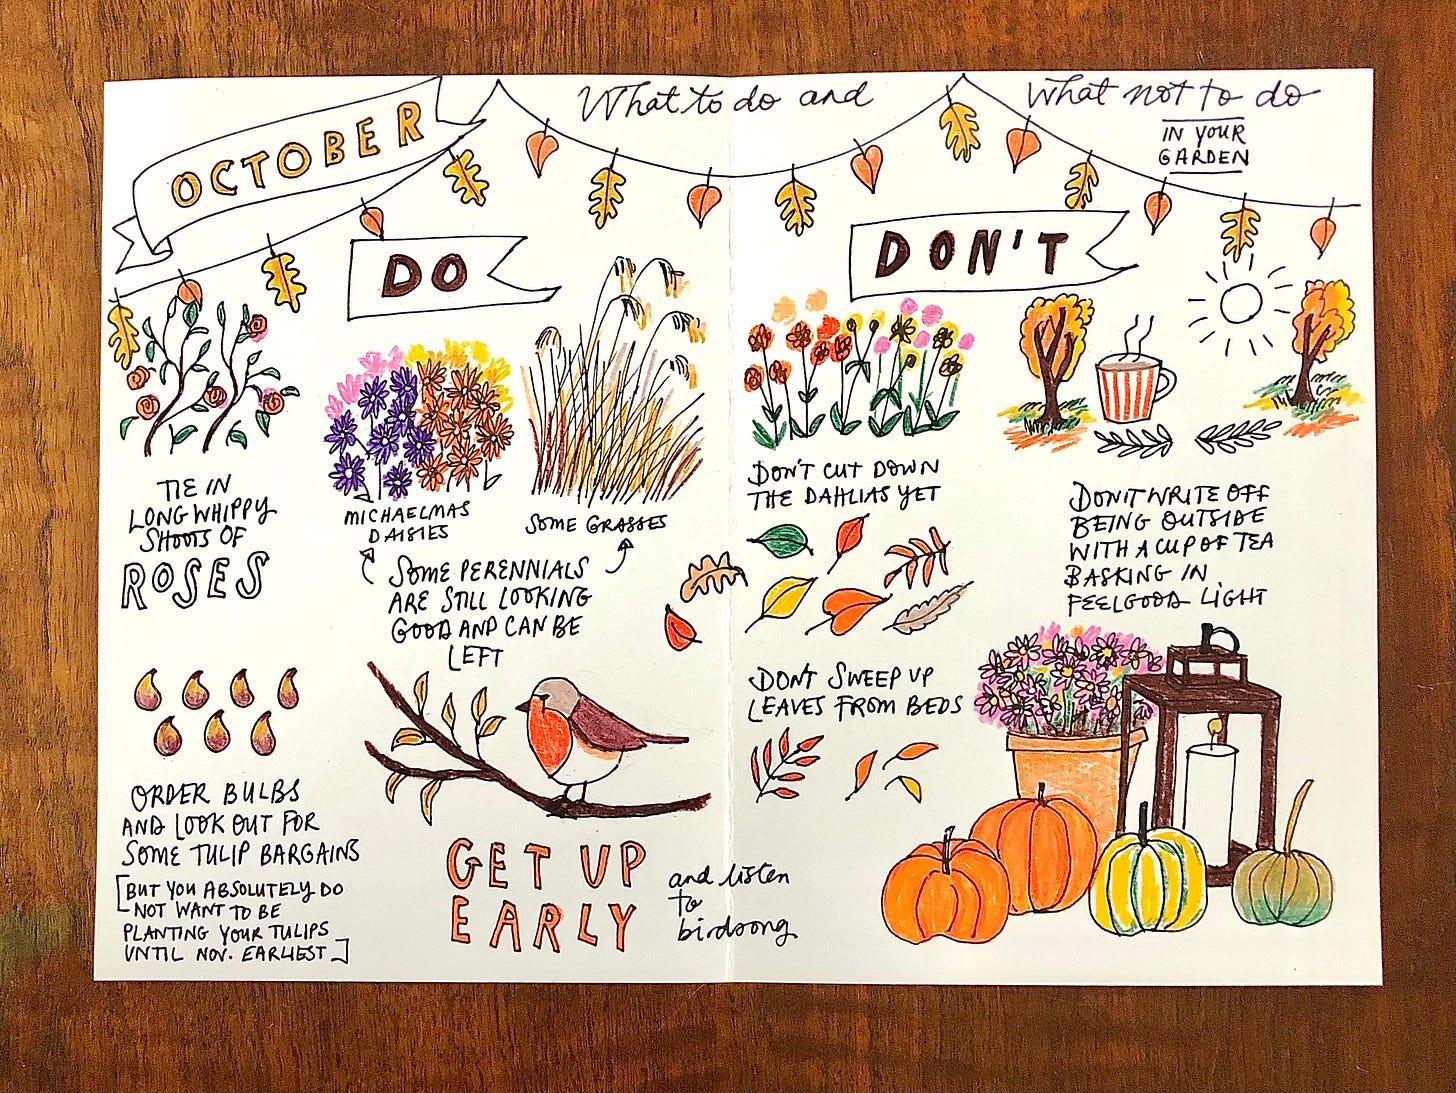 OCTOBER
What to do and
What not to do
IN YOUR
GARDEN
DO
TIE IN
LONG WHIPPY
SHOOTS OF
ROSES
MICHAELMAS
DAISIES
SOME GRASSES
SOME PERENNIALS
ARE STILL LOOKING
GOOD AND CAN BE
LEFT
ORDER BULBS
AND LOOK OUT FOR
SOME TULIP BARGAINS
[BUT YOU ABSOLUTELY DO
NOT WANT TO BE
PLANTING YOUR TULIPS
UNTIL NOV. EARLIEST]
GET UP
EARLY
and listen
to
birdsong
DON'T
DON'T CUT DOWN
THE DAHLIAS YET
DON'T SWEEP UP
LEAVES FROM BEDS
DON'T WRITE OFF
BEING OUTSIDE
WITH A CUP OF TEA
BASKING IN
FEELGOOD LIGHT